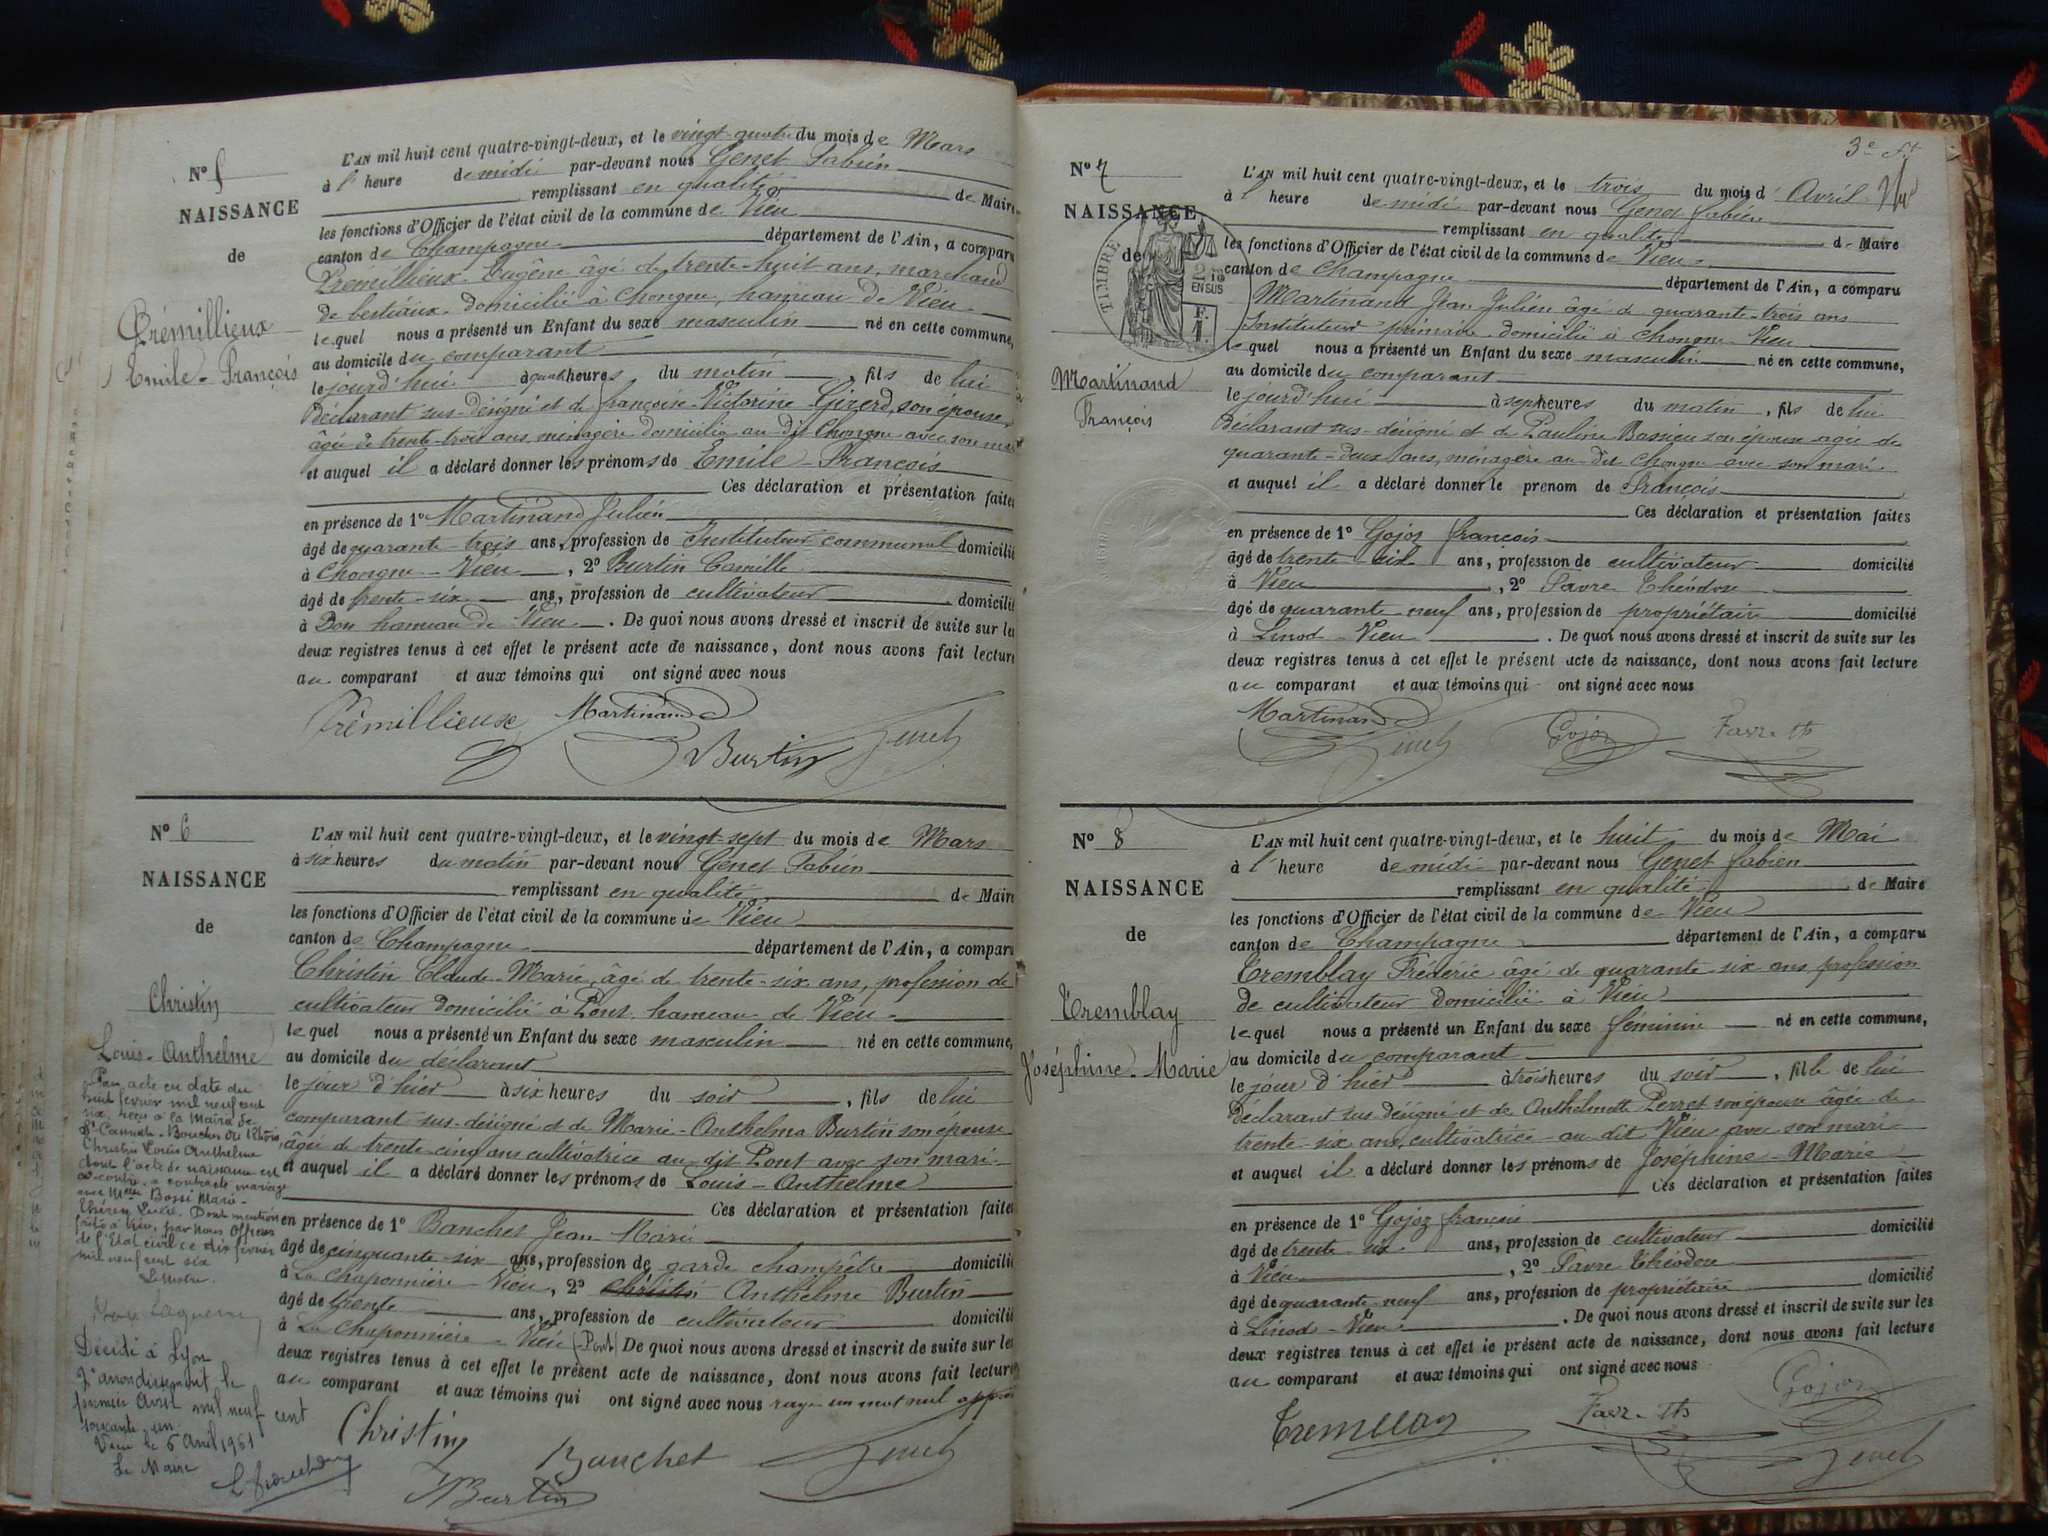 Nº 5
NAISSANCE
de
Prémillieux
Emile-François
L'AN mil huit cent quatre-vingt-deux, et le vingt-quatre du mois de Mars
à l'heure de midi par-devant nous Genet Fabien
remplissant en qualité de Maire
les fonctions d'Officier de l'état civil de la commune de Vieu
canton de Champagne département de l'Ain, a comparu
Prémillieux Eugène âgé de trente-huit ans, marchand
de bestiaux domicilié à Chongne, hameau de Vieu
lequel nous a présenté un Enfant du sexe masculin né en cette commune,
au domicile du comparant
le jourd'hui à quatre heures du matin, fils de lui
Déclarant sus-désigné et de françoise-Victorine Girerd, son épouse,
âgée de trente-trois ans, ménagère domiciliée au dit Chongne avec son mari
et auquel il a déclaré donner les prénoms de Emile-François
Ces déclaration et présentation faites
en présence de 1º Martinand Julien
âgé de quarante-trois ans, profession de Instituteur communal domicilié
à Chongne-Vieu, 2º Burtin Camille
âgé de trente-six ans, profession de cultivateur domicilié
à Don hameau de Vieu. De quoi nous avons dressé et inscrit de suite sur les
deux registres tenus à cet effet le présent acte de naissance, dont nous avons fait lecture
au comparant et aux témoins qui ont signé avec nous
Prémillieux Martinand
Burtin Genet
Nº 6
NAISSANCE
de
Christin
Louis-Anthelme
Par acte en date du
huit février mil neuf cent
six, reçu à la Mairie de
Sᵗ Cannat-Bouches du Rhône
Christin Louis Anthelme
dont l'acte de naissance est
ci-contre, a contracté mariage
avec Mᵉˡˡᵉ Bossi Marie-
Thérèse Lucie. Dont mention
faite à Vieu, par Nous Officier
de l'Etat civil ce dix février
mil neuf cent six
Le Maire.
Décédé à Lyon
2ᵉ arrondissement le
premier Avril mil neuf cent
soixante un
Vieu le 6 avril 1961
Le Maire
L'AN mil huit cent quatre-vingt-deux, et le vingt sept du mois de Mars
à six heures du matin par-devant nous Genet Fabien
remplissant en qualité de Maire
les fonctions d'Officier de l'état civil de la commune de Vieu
canton de Champagne département de l'Ain, a comparu
Christin Claude-Marie, âgé de trente-six ans, profession de
cultivateur domicilié à Pont hameau de Vieu
lequel nous a présenté un Enfant du sexe masculin né en cette commune,
au domicile du déclarant
le jour d'hier à six heures du soir, fils de lui
comparant sus-désigné et de Marie-Anthelma Burtin son épouse
âgée de trente-cinq ans cultivatrice au dit Pont avec son mari
et auquel il a déclaré donner les prénoms de Louis-Anthelme
Ces déclaration et présentation faites
en présence de 1º Banchet Jean Marie
âgé de cinquante-six ans, profession de garde champêtre domicilié
à La Chaponnière-Vieu, 2º Christin Anthelme Burtin
âgé de trente ans, profession de cultivateur domicilié
à La Chaponnière-Vieu (Pont) De quoi nous avons dressé et inscrit de suite sur les
deux registres tenus à cet effet le présent acte de naissance, dont nous avons fait lecture
au comparant et aux témoins qui ont signé avec nous rayé un mot nul
Christin Banchet Genet
Burtin
3ᵉ
Nº 7
NAISSANCE
de
TIMBRE
2/10
EN SUS
F.
1.
Martinand
François
L'AN mil huit cent quatre-vingt-deux, et le trois du mois d'Avril
à l'heure de midi par-devant nous Genet fabien
remplissant en qualité de Maire
les fonctions d'Officier de l'état civil de la commune de Vieu
canton de Champagne département de l'Ain, a comparu
Martinand Jean Julien âgé de quarante-trois ans
Instituteur primaire domicilié à Chongne-Vieu
lequel nous a présenté un Enfant du sexe masculin né en cette commune,
au domicile du comparant
le jourd'hui à sept heures du matin, fils de lui
Déclarant sus-désigné et de Pauline Bassieu son épouse âgée de
quarante-deux ans, ménagère au dit Chongne avec son mari
et auquel il a déclaré donner le prenom de François
Ces déclaration et présentation faites
en présence de 1º Gojoz françois
âgé de trente six ans, profession de cultivateur domicilié
à Vieu, 2º Favre Théodore
âgé de quarante neuf ans, profession de propriétaire domicilié
à Linod-Vieu. De quoi nous avons dressé et inscrit de suite sur les
deux registres tenus à cet effet le présent acte de naissance, dont nous avons fait lecture
au comparant et aux témoins qui ont signé avec nous
Martinand Genet Gojoz Favre Th
Nº 8
NAISSANCE
de
Tremblay
Joséphine-Marie
L'AN mil huit cent quatre-vingt-deux, et le huit du mois de Mai
à l'heure de midi par-devant nous Genet fabien
remplissant en qualité de Maire
les fonctions d'Officier de l'état civil de la commune de Vieu
canton de Champagne département de l'Ain, a comparu
Tremblay Frédéric âgé de quarante six ans profession
de cultivateur domicilié à Vieu
lequel nous a présenté un Enfant du sexe féminin né en cette commune,
au domicile du comparant
le jour d'hier à trois heures du soir, fille de lui
Déclarant sus désigné et de Anthelmette Perret son épouse âgée de
trente-six ans, cultivatrice au dit Vieu avec son mari
et auquel il a déclaré donner les prénoms de Joséphine-Marie
Ces déclaration et présentation faites
en présence de 1º Gojoz françois
âgé de trente six ans, profession de cultivateur domicilié
à Vieu, 2º Favre Théodore
âgé de quarante-neuf ans, profession de propriétaire domicilié
à Linod-Vieu. De quoi nous avons dressé et inscrit de suite sur les
deux registres tenus à cet effet le présent acte de naissance, dont nous avons fait lecture
au comparant et aux témoins qui ont signé avec nous
Tremblay Favre Th Gojoz
Genet